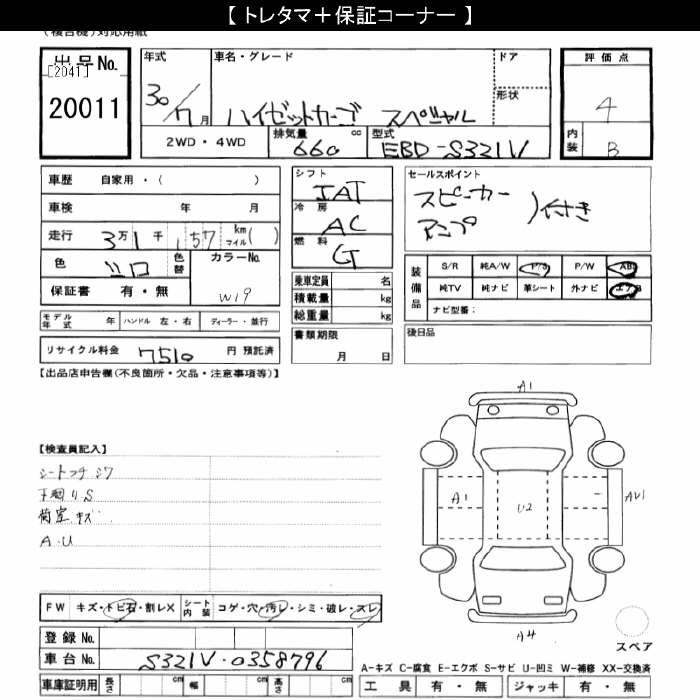 【 トレタマ＋保証コーナー 】
(複合機)対応用紙
出品No.
[2041]
20011
年式
30/7月
車名・グレード
ハイゼットカーゴ スペシャル
ドア
形状
評価点
4
内装
B
2WD・4WD
排気量 660 cc
型式 EBD-S321V
車歴 自家用・( )
車検 年 月
走行 3万1千157 km マイル( )
色 シロ
色替
カラーNo.
W19
保証書 有・無
シフト
IAT
冷房
AC
燃料
G
乗車定員 名
積載量 kg
総重量 kg
セールスポイント
スピーカー
アンプ
)付き
装備品
S/R 純A/W P/S P/W AB
純TV 純ナビ 革シート 外ナビ エアB
ナビ型番：
モデル年式 年 ハンドル 左・右 ディーラー・並行
リサイクル料金 7510 円 預託済
書類期限
月 日
後日品
【出品店申告欄(不良箇所・欠品・注意事項等)】
【検査員記入】
シートコゲ シワ
下廻りS
荷室キズ
A.U
A1
A1
U2
AU1
A4
スペア
FW キズ・トビ石・割レX
シート内装 コゲ・穴・汚レ・シミ・破レ・スレ
登録No.
車台No. S321V-0358796
車庫証明用 長さ cm 幅 cm 高さ cm
A-キズ C-腐食 E-エクボ S-サビ U-凹ミ W-補修 XX-交換済
工具 有・無 ジャッキ 有・無